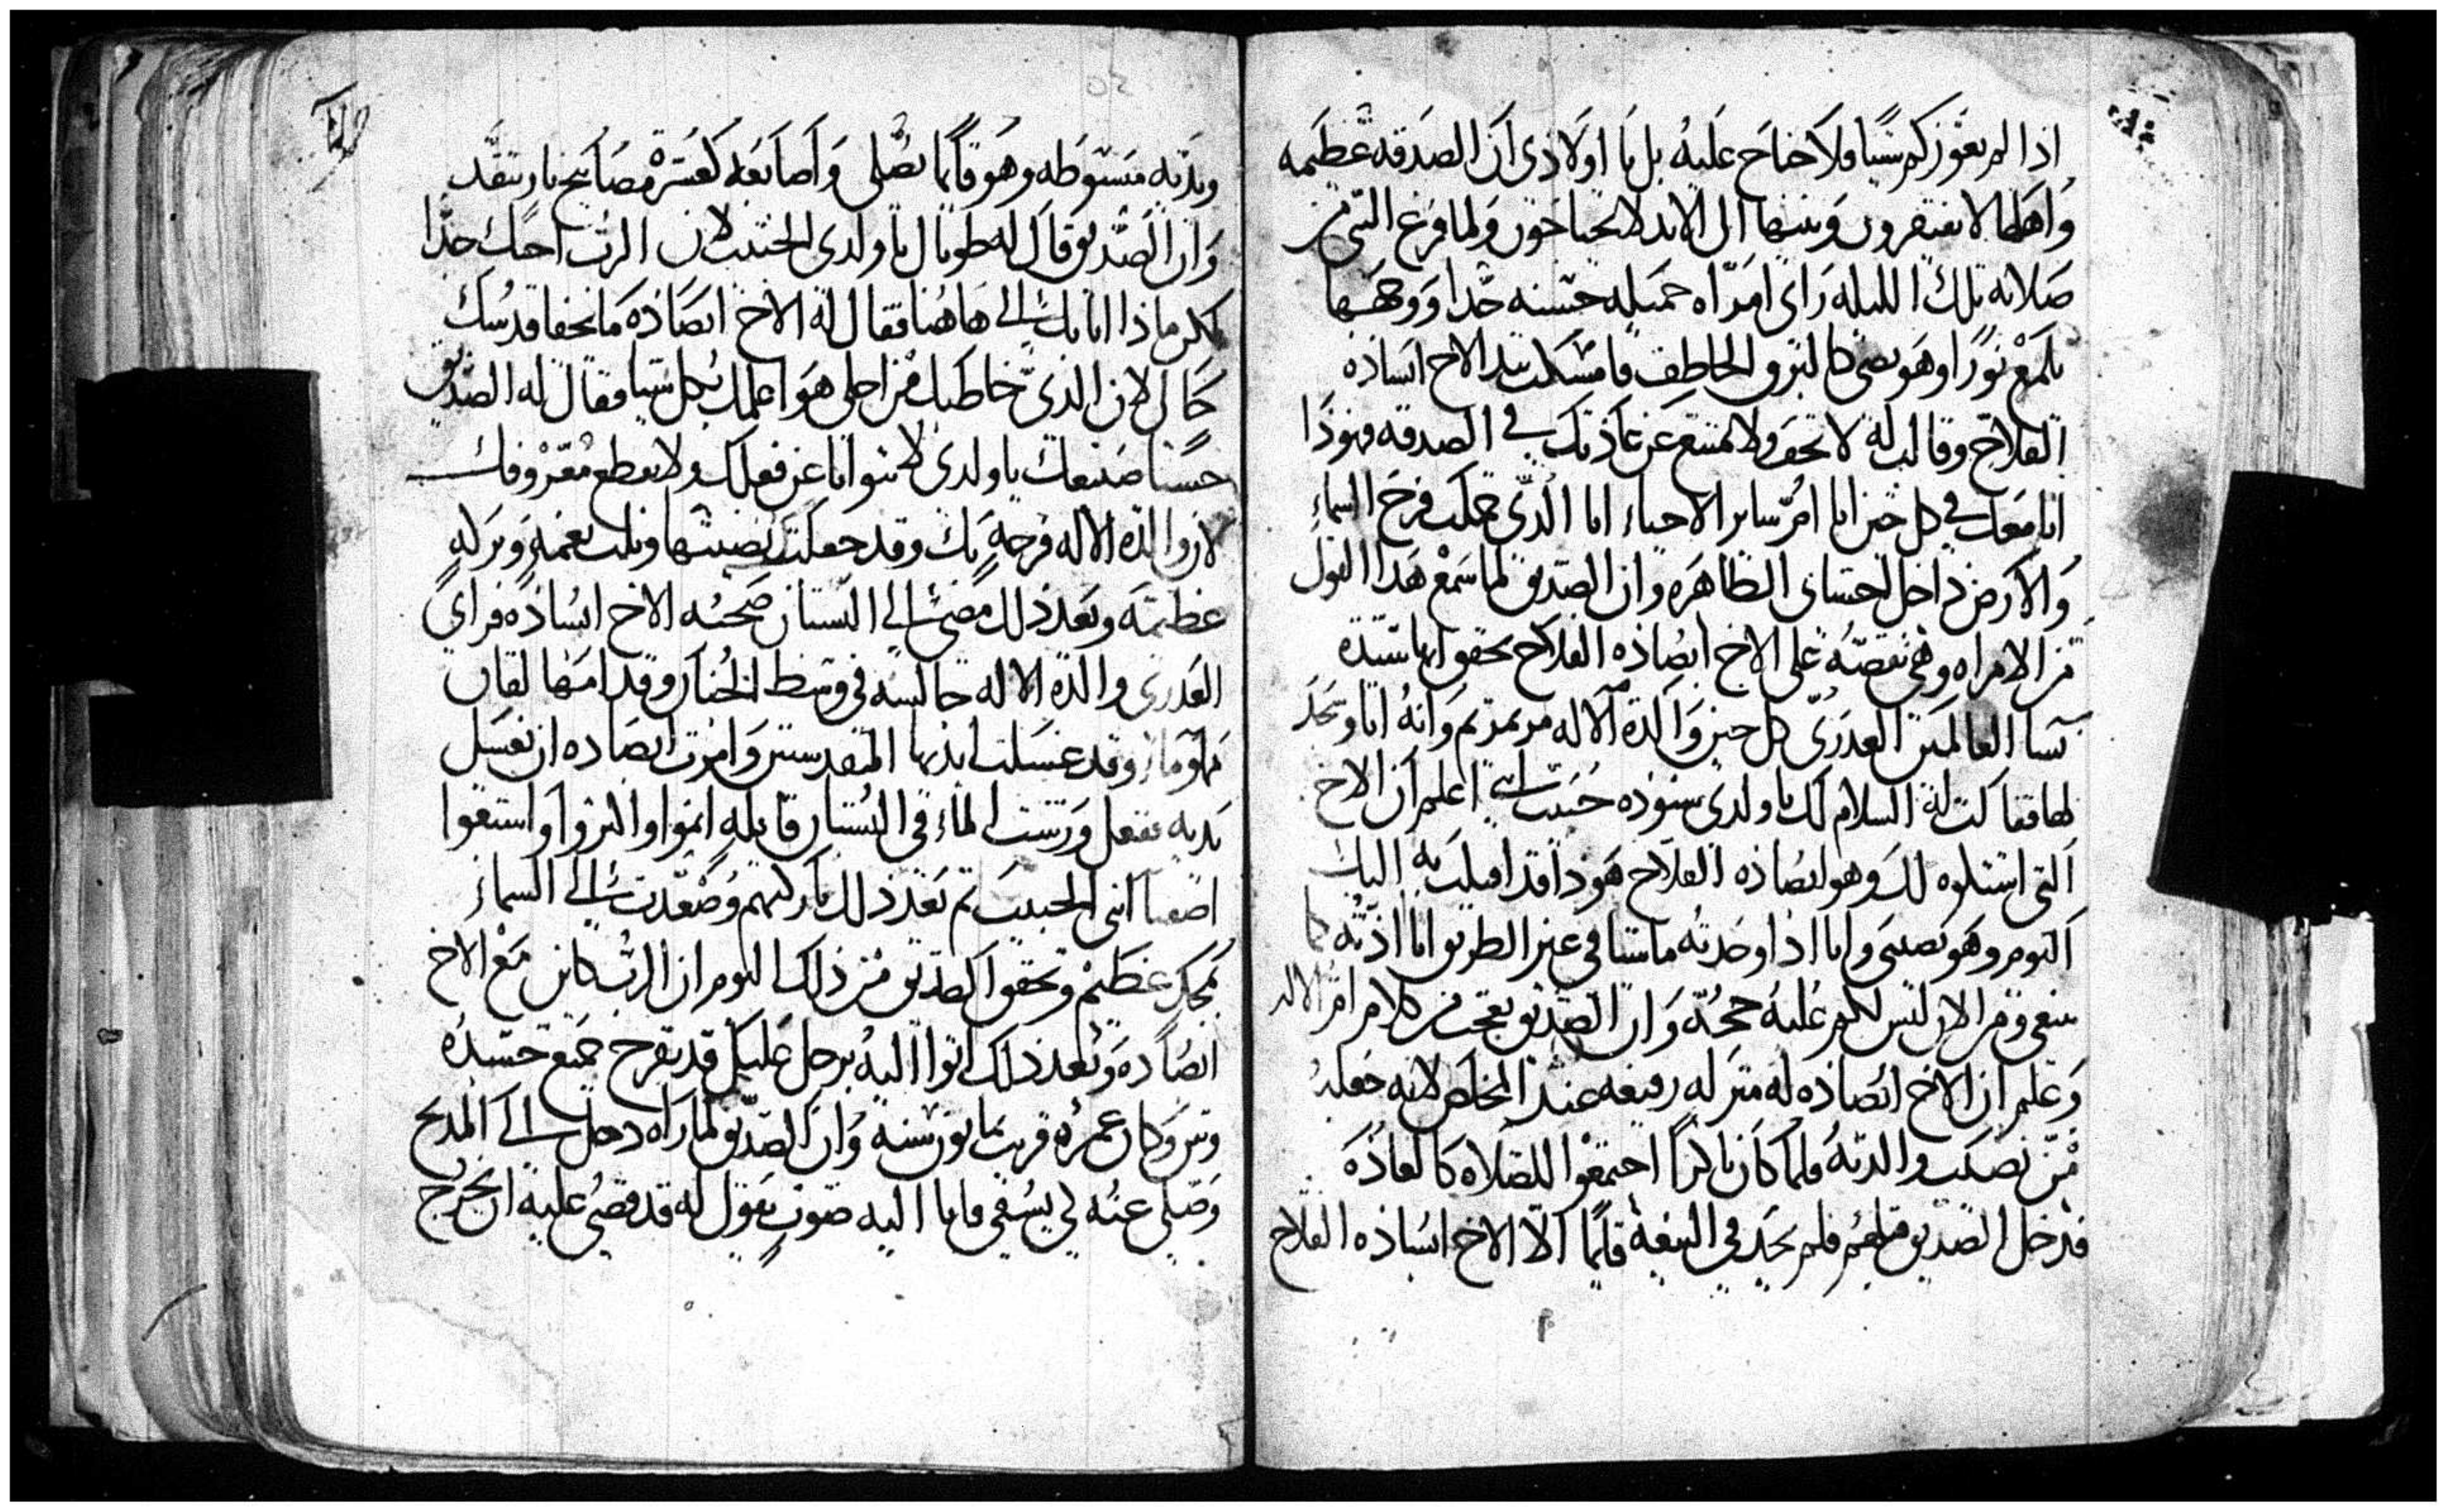 اذا لم يعوزكم شيا فلا جناح عليه بل يا اولادي ان الصدقه عظيمه
واهلها لا يفتقرون وبنيها الى الابد لا يحتاجون ولما فرغ النبي من
صلاته تلك الليله راى امراه جميله حسنه جدا ووجهها
يلمع نورا وهو يضي كالبرق الخاطف فامسكت بيد الاخ ابصاده
الفلاح وقالت له لا تخف ولا تمتنع عن عادتك في الصدقه فهوذا
انا معك في كل حين انا ام ساير الاحياء انا الذي حملت فرح السماء
والارض داخل احشاى الطاهره وان الصديق لما سمع هدا القول
من الامراه وهي تقصه على الاخ ابصاده الفلاح تحقق انها ستنا
نسا العالمين العدرى كل حين والدة الاله مرتمريم وانه اتا وسجد
لها فقالت له السلام لك يا ولدي شنوده حبيب ابني اعلم ان الاخ
التي اشتكوه لك وهو ابصاده الفلاح هوذا قد اقبلت به اليك
اليوم وهو نصيبي وانا اذا وجدته ماشيا في غير الطريق انا اأدبه كما
ينبغي ومن الان ليس لكم عليه حجه وان الصديق تعجب من كلام ام الاله
وعلم ان الاخ ابصاده له منزله رفيعه عند المخلص لانه جعله
من نصيب والدته فلما كان باكرا اجتمعوا للصلاه كالعاده
فدخل الصديق قبلهم فلم يجد في البيعه قايما الا الاخ ابصاده الفلاح
ويديه مبسوطه وهو قايما يصلى واصابعه كعشرة مصابيح نار تتقد
وان الصديق قال له طوبا لك يا ولدى الحبيب لان الرب احبك جدا
لكن ماذا اتا بك الى هاهنا فقال له الاخ ابصاده ما يخفا قدسك
حالى لان الذي خاطبك من اجلى هو اعلمك بكل شيا فقال له الصديق
حسنا صنيعك يا ولدى لا تتوانا عن فعلك ولا تقطع معروفك
لان والدة الاله فرحة بك وقد جعلتك نصيبها ونلت نعمه وبركه
عظيمه وبعد ذلك مضى الى البستان صحبته الاخ ابصاده فراى
العدرى والدة الاله جالسه في وسط الخيار وقدامها لقان
مملو ماء وقد غسلت ايديها المقدستين وامرت ابصاده ان يغسل
يديه ففعل ورشت الماء في البستان قايله انموا واكثروا واستغوا
اضعاف ابني الحبيب ثم بعد ذلك باركتهم وصعدت الى السماء
بمجد عظيم وتحقق الصديق من ذلك اليوم ان الرب كاين مع الاخ
ابصاده وبعد ذلك اتوا اليه برجل عليل قد تقرح جميع جسده
وتبن وكان عمره قريب ثمانون سنه وان الصديق لما راه دخل الى المدبح
وصلى عنه لي يشفي فاتا اليه صوت يقول له قد قضي عليه ان يخرج